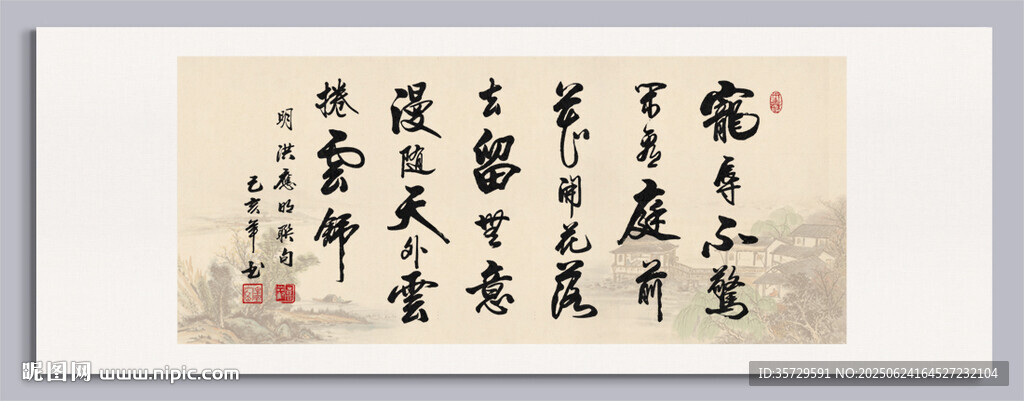 寵辱不驚
閑看庭前
花開花落
去留無意
漫随天外雲
捲雲舒
明洪應明聯句
己亥年书
昵图网 www.nipic.com
ID:35729591 NO:20250624164527232104